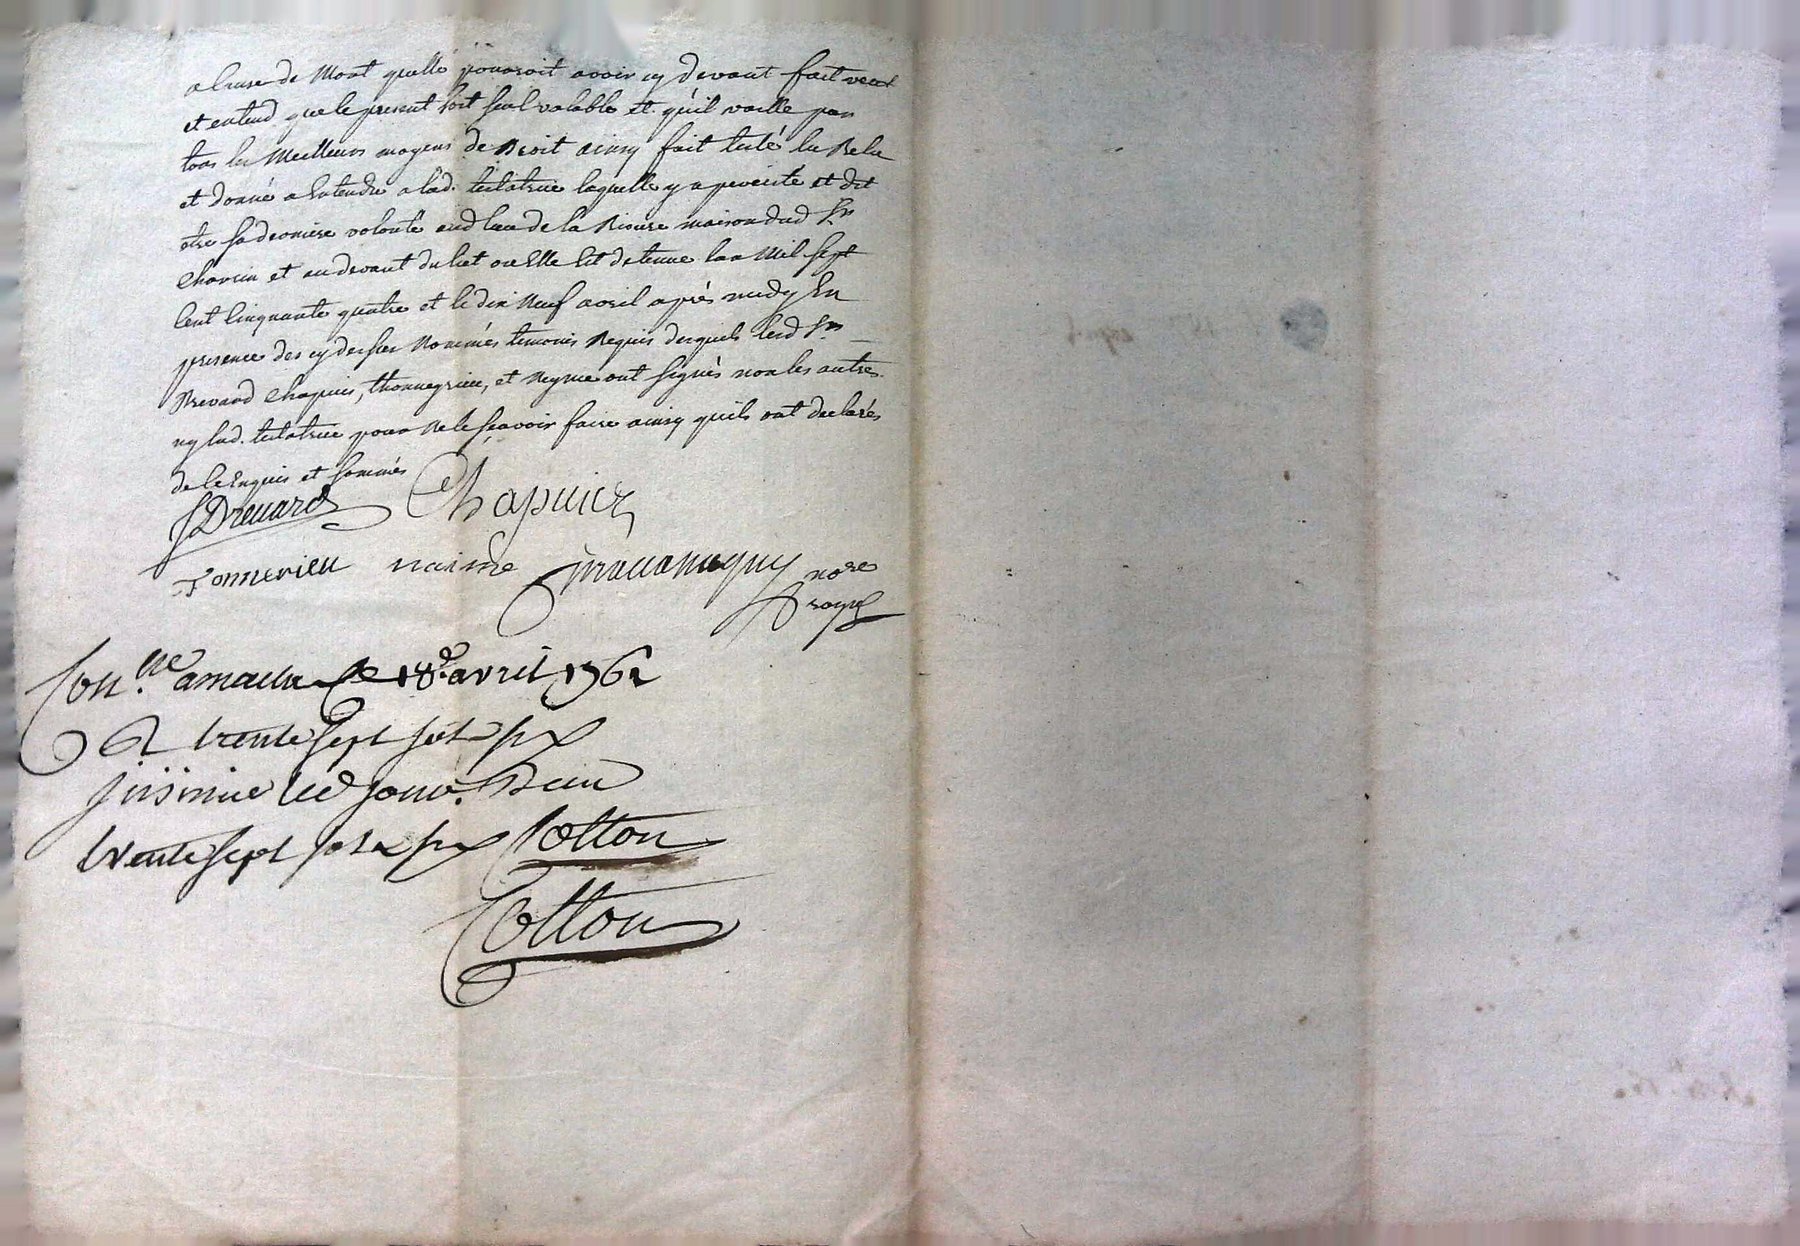 a cause de Mort quelle pouvoit avoir cy devant fait veut
et entend que le present soit seul valable et quil vaille par
tous les Meilleurs moyens de Droit ainsy fait leu Relu
et donné a Entendre a lad. testatrice laquelle y a persisté et dit
etre sa derniere volonté aud lieu de la maison dud Sr.
et au devant du lict ou Elle Est detenue lan Mil sept
Cent Cinquante quatre et le dix Neuf avril après midy En
presence des cy dessus Nommés temoins Requis desquels lesd Srs.
Drevard Chapuis, thonnerieu, et Neyme ont signés non les autres
ny lad. testatrice pour Ne le sçavoir faire ainsy quils ont declarés
de ce Enquis et sommés
Drevard Chapuiz
Tonnerieu naime nore
royal
Con.lle le 18e. avril 1761
R trente sept sols
jnsinué led jour. Recu
trente sept sols Cotton
Cotton